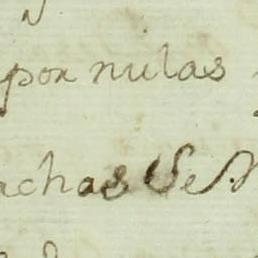 por nulas
achas Se